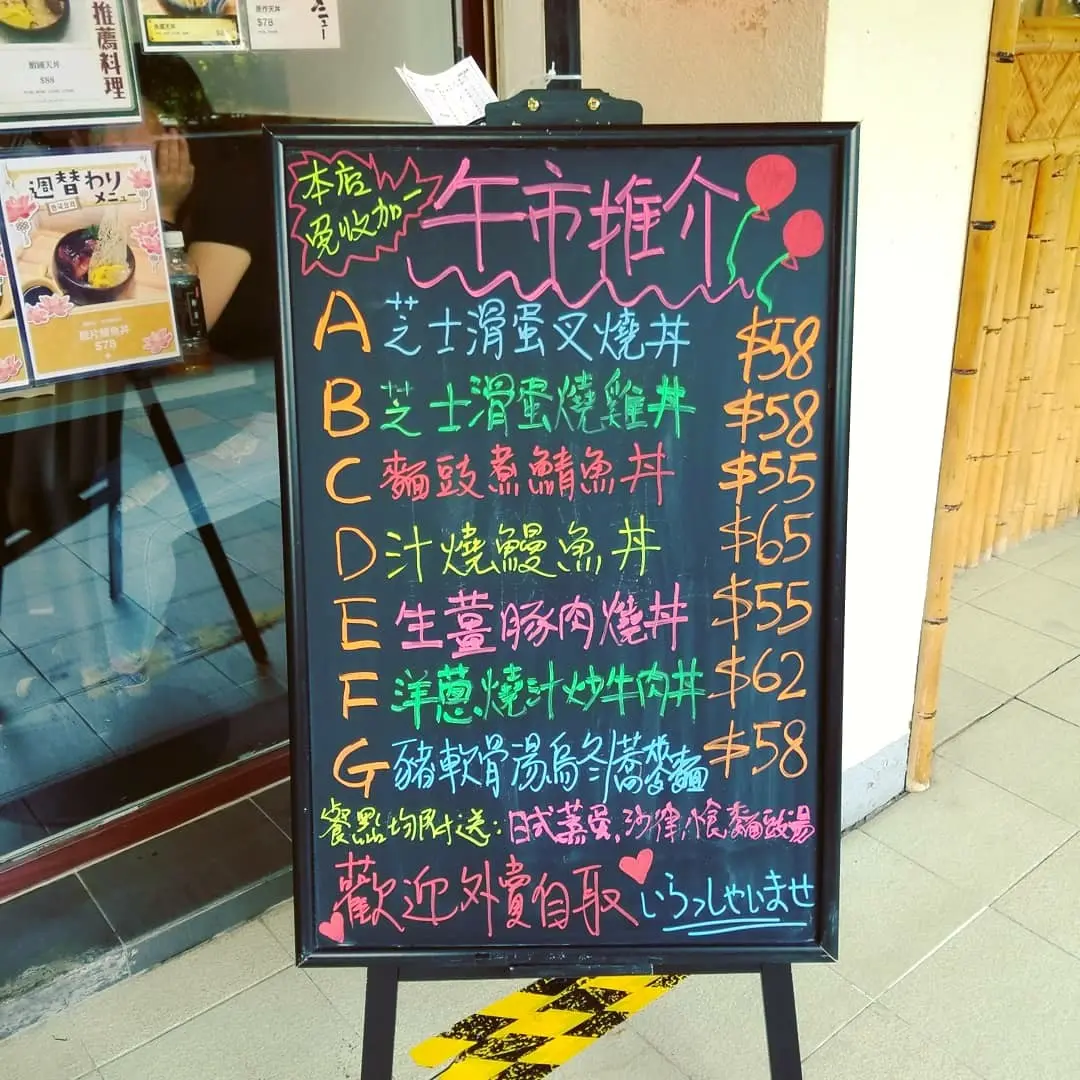 推薦料理
鰻鋪天丼
$88
$78
メニュー
週替わり
メニュー
$78
本店
免收加一
午市推介
A 芝士滑蛋叉燒丼 $58
B 芝士滑蛋燒雞丼 $58
C 麵豉煮鯖魚丼 $55
D 汁燒鰻魚丼 $65
E 生薑豚肉燒丼 $55
F 洋蔥燒汁炒牛肉丼 $62
G 豬軟骨湯烏冬/蕎麥麵 $58
餐點均附送:日式蒸蛋,沙律,小食,麵豉湯
歡迎外賣自取 いらっしゃいませ